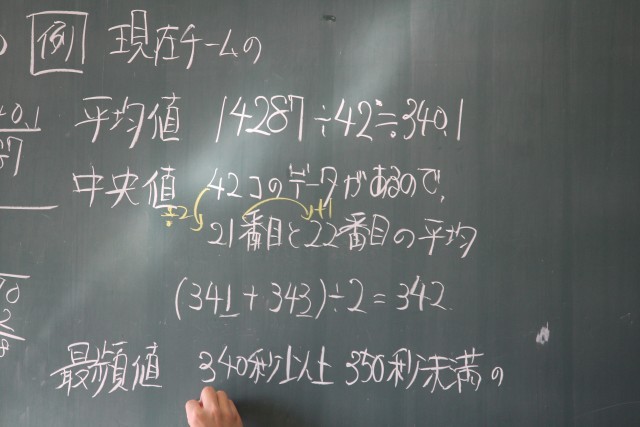 例 現在チームの
平均値 14287÷42≒340.1
中央値 42コのデータがあるので、
÷2 +1
21番目と22番目の平均
(341+343)÷2=342
最頻値 340秒以上 350秒未満の